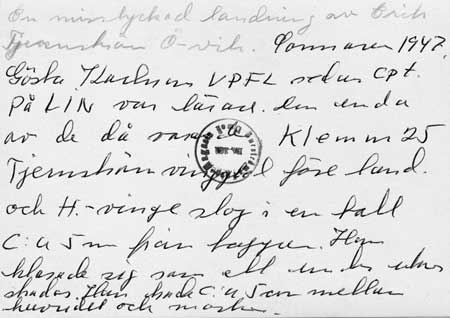 En misslyckad landning av Erich
Tjernström Ö-vik. Sommaren 1947.
Gösta Karlsson VPFL sedan Cpt.
på LIN var lärare. den enda
av de då Klemm 25
Tjernström före land.
och H.-vinge slog i en tall
C:a 5m från toppen. Han
klarade sig som ett under utan
skador. Han hade C:a 5cm mellan
huvudet och marken.